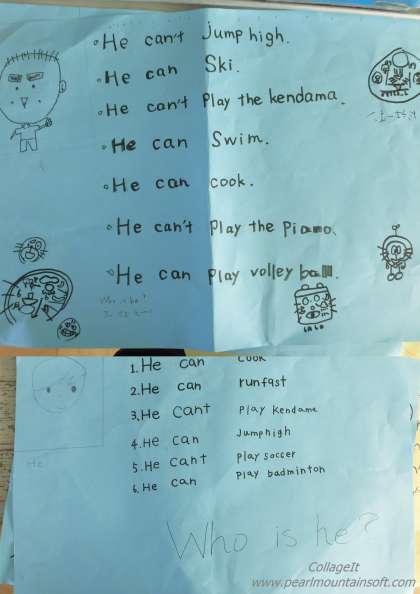 He can't Jump high.
He can Ski.
He can't Play the kendama.
He can Swim.
He can cook.
He can't Play the Piano.
He can Play volley ball.
Who is he?
1. He can cook
2. He can run fast
3. He can't Play kendama
4. He can Jump high
5. He can't Play soccer
6. He can Play badminton
He
Who is he?
CollageIt
www.pearlmountainsoft.com